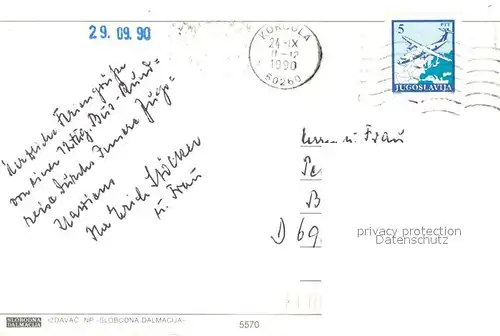 29.09.90
KORČULA
24-IX
11-12
1990
50260
5 PTT
JUGOSLAVIJA
Herzliche Feriengrüße
von einer 12täg. Bus-Rund=
reise durchs Innere Jugo=
slawiens
Ihr Erich Stöcker
u. Frau
Herrn u. Frau
Pe
B
D 69
privacy protection
Datenschutz
SLOBODNA
DALMACIJA
IZDAVAČ: NP «SLOBODNA DALMACIJA»
5570